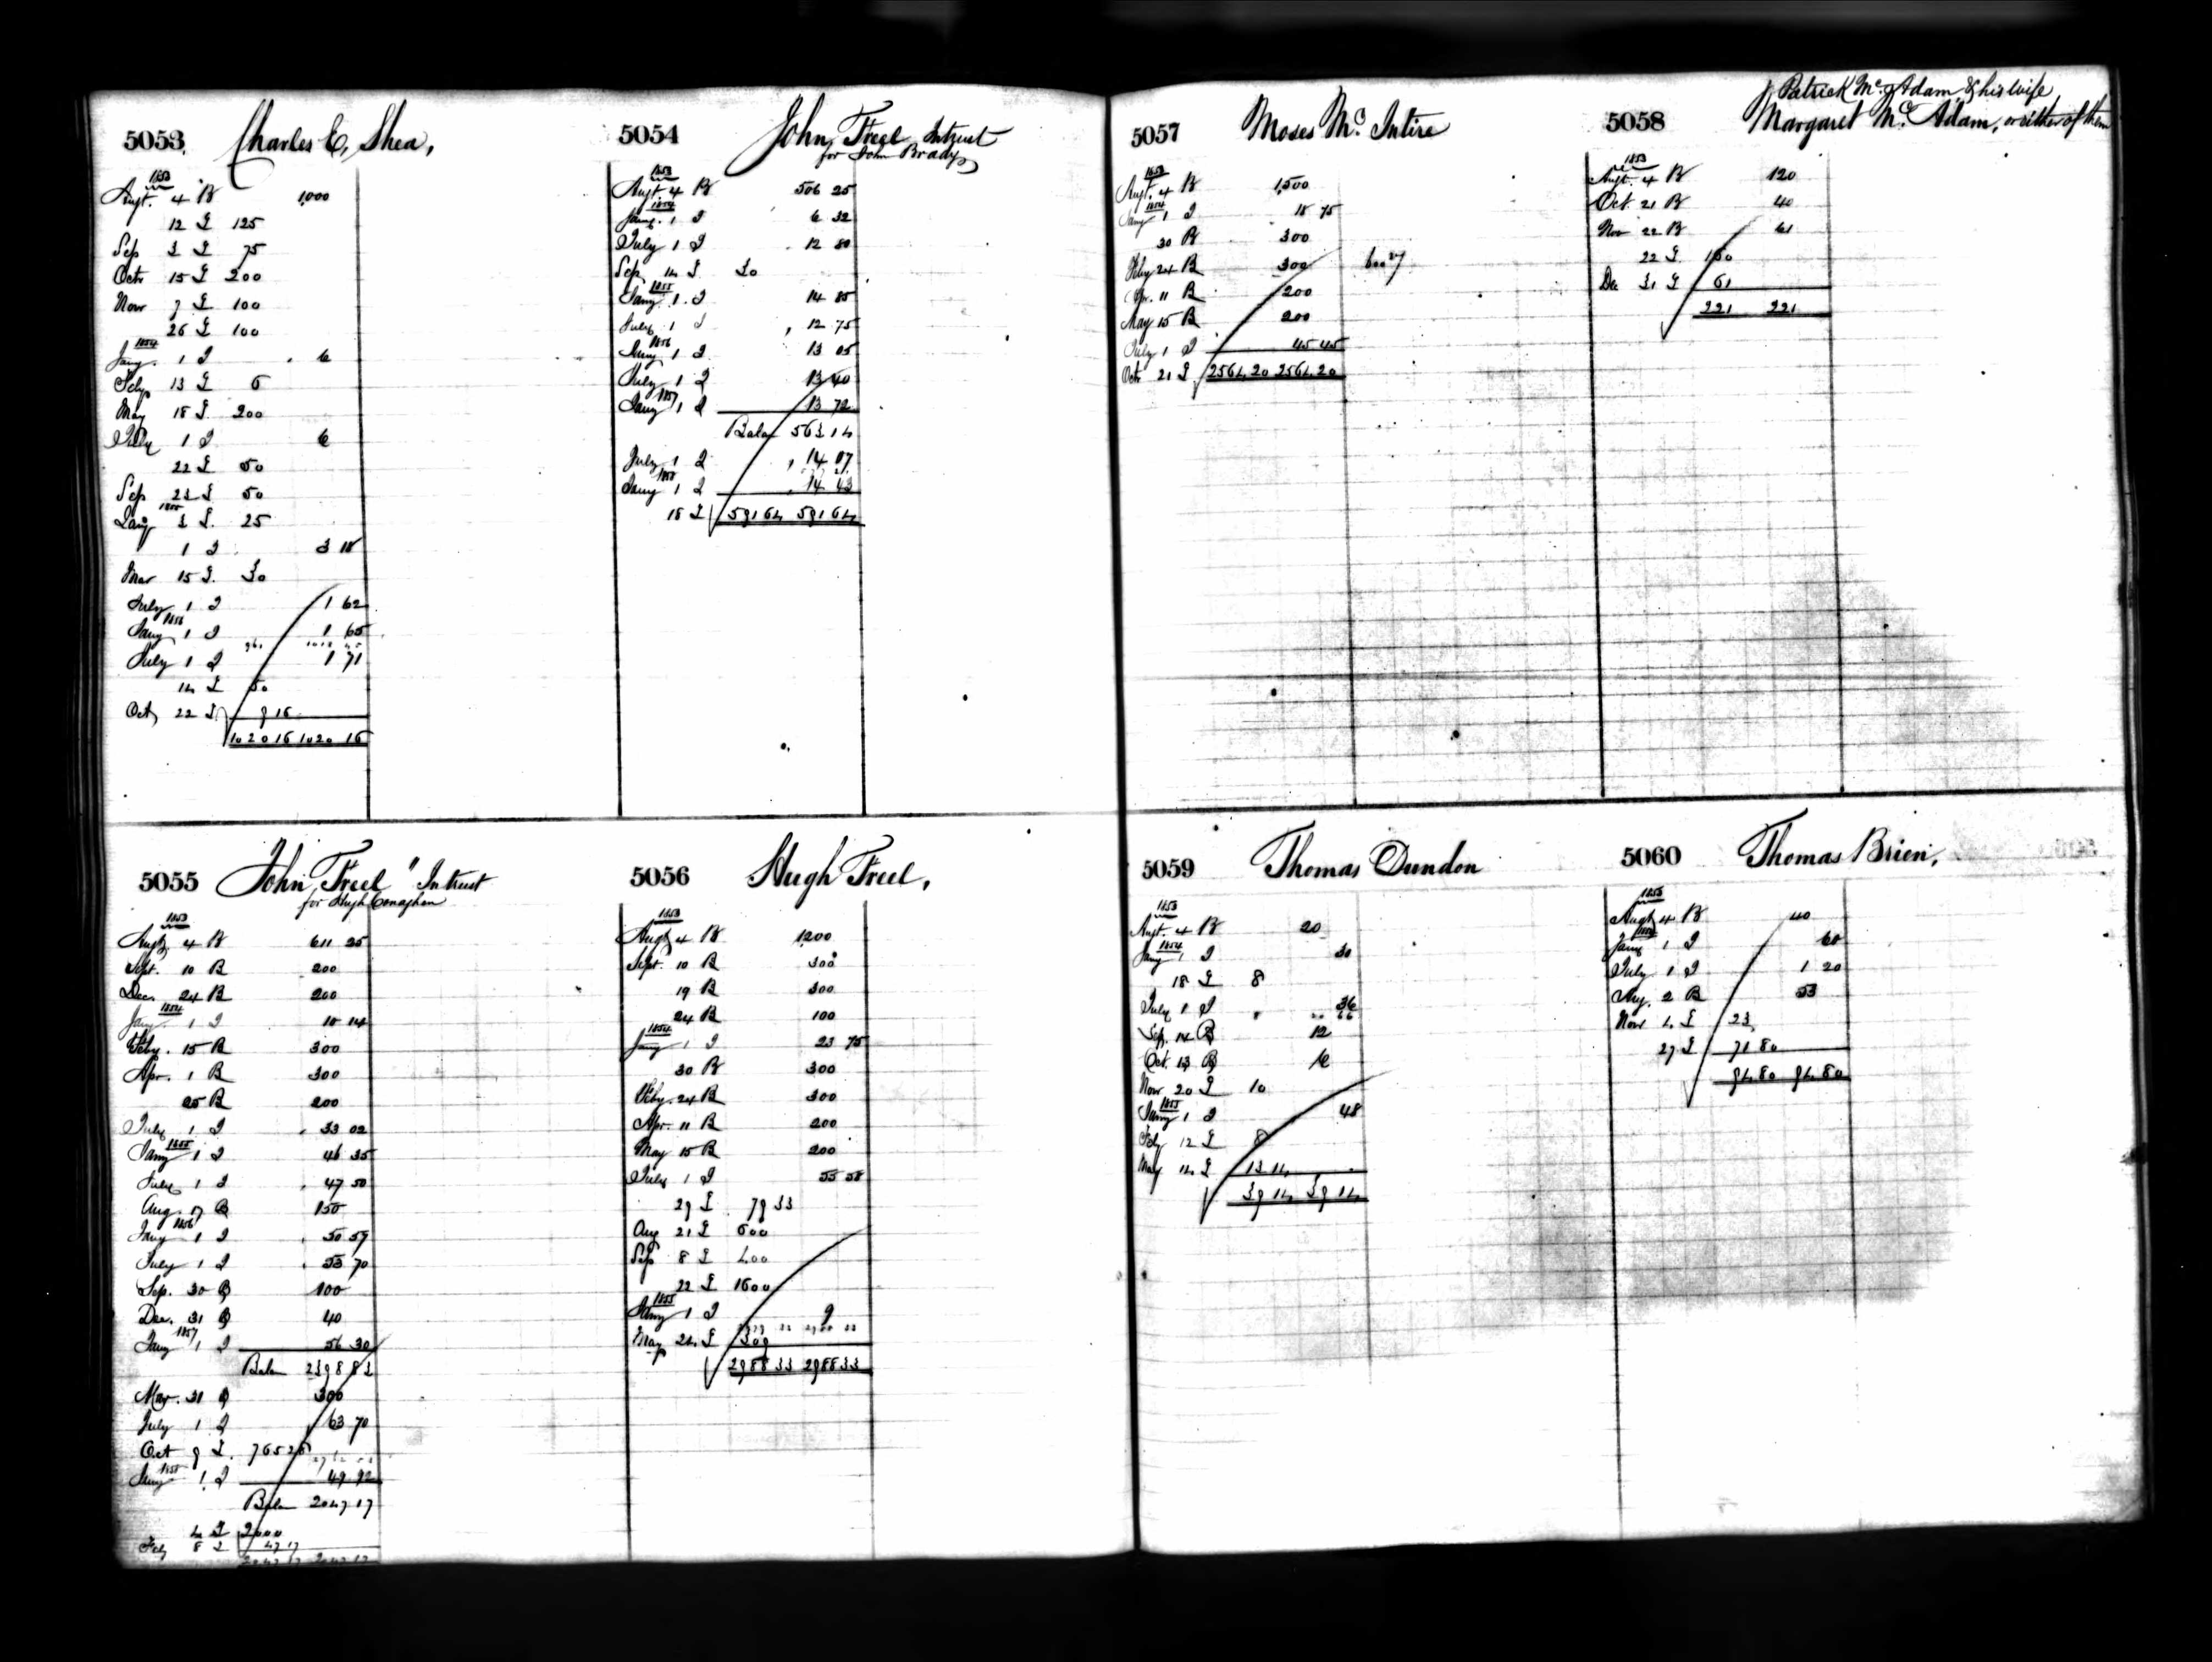 5053 Charles E, Shea,
1853
Augt. 4 B 1,000
12 L 125
Sep 3 L 75
Octr 15 L 200
Novr 7 L 100
26 L 100
1854
Jany. 1 I 6
Feby 13 L 6
May 18 L 200
July 1 I 6
22 L 50
Sep 23 L 50
1855
Jany 3 L. 25
1 I 3 18
Mar 15 L. 30
July 1 I 1 62
1856
Jany 1 I 1 65
July 1 I 1 71
14 L 50
Oct 22 L 9 16
1020 16 1020 16
5054 John Freel Intrust
for John Brady
1853
Augt. 4 B 506 25
1854
Jany. 1 I 6 32
July 1 I 12 80
Sep 14 L 30
1855
Jany 1 I 14 85
July 1 I 12 75
1856
Jany 1 I 13 05
July 1 I 13 40
1857
Jany 1 I 13 72
Balan 563 14
July 1 I 14 07
1858
Jany 1 I 14 43
18 L 591 64 591 64
5055 John Freel "Intrust
for Hugh Conaghan
1853
Augt 4 B 611 25
Sept. 10 B 200
Dec. 24 B 200
1854
Jany 1 I 10 14
Feby. 15 B 300
Apr. 1 B 300
25 B 200
July 1 I 33 02
1855
Jany 1 I 46 35
July 1 I 47 50
Aug. 17 B 150
1856
Jany 1 I 50 57
July 1 I 53 70
Sep. 30 B 100
Dec. 31 B 40
1857
Jany 1 I 56 30
Balan 2398 83
Mar. 31 B 300
July 1 I 63 70
Oct 9 L. 765 28
1858
Jany 1 I 49 92
Balan 2047 17
4 L 2000
Feb 8 L 47 17
2047 17 2047 17
5056 Hugh Freel,
1853
Augt 4 B 1200
Sept. 10 B 300
19 B 300
24 B 100
1854
Jany 1 I 23 75
30 B 300
Feby. 24 B 300
Apr. 11 B 200
May 15 B 200
July 1 I 55 58
29 L 79 33
Aug 21 L 600
Sep 8 L 400
22 L 1600
1855
Jany 1 I 9
May 24 L 309
2988 33 2988 33
5057 Moses Mc. Intire
1853
Augt. 4 B 1,500
1854
Jany 1 I 18 75
30 B 300
Feby 24 B 300
Apr. 11 B 200
May 15 B 200
July 1 I 45 45
Octr 21 L 2564 20 2564 20
Patrick Mc. Adam & his wife
5058 Margaret Mc. Adam, or either of them
1853
Augt. 4 B 120
Oct. 21 B 40
Nov 22 B 61
22 L 160
Dec 31 L 61
221 221
5059 Thomas Dundon
1853
Augt. 4 B 20
1854
Jany 1 I 30
18 L 8
July 1 I 36
Sep. 14 B 12
Oct. 13 B 6
Nov 20 L 10
1855
Jany 1 I 48
Feby 12 L 8
May 14 L 13 14
39 14 39 14
5060 Thomas Brien,
1853
Augt 4 B 40
1854
Jany 1 I 60
July 1 I 1 20
Aug. 2 B 53
Nov 4 L 23
27 L 71 80
94 80 94 80